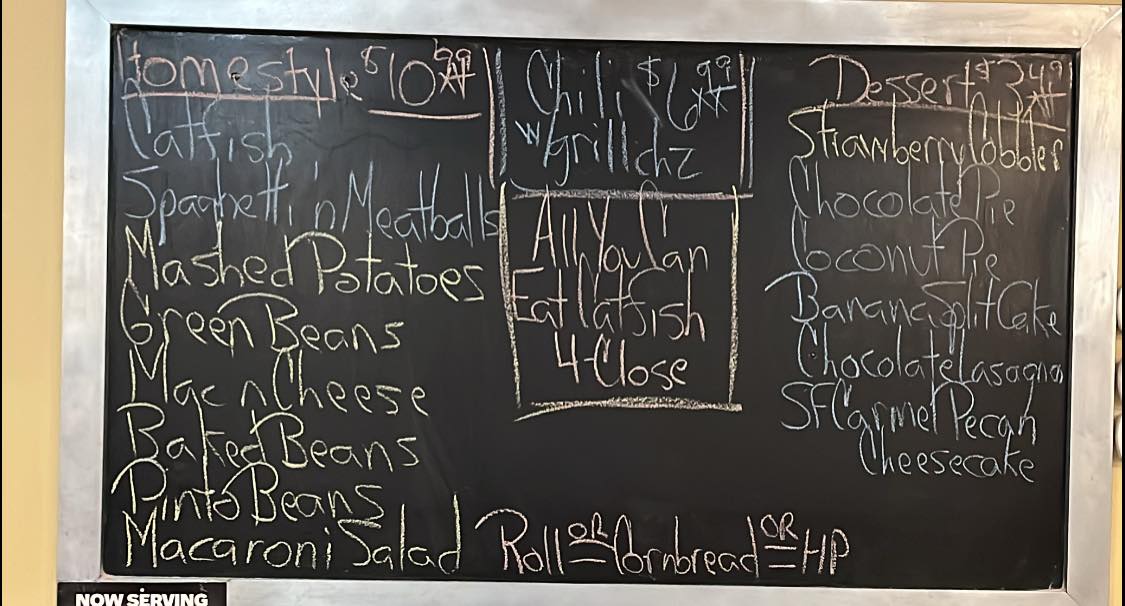 Homestyle $10.99
Catfish
Spaghetti n Meatballs
Mashed Potatoes
Green Beans
Mac n Cheese
Baked Beans
Pinto Beans
Macaroni Salad
Chili $6.99
w/grill chz
All You Can
Eat Catfish
4-Close
Dessert $3.49
Strawberry Cobbler
Chocolate Pie
Coconut Pie
Banana Split Cake
Chocolate Lasagna
SF Carmel Pecan
Cheesecake
Roll OR Cornbread OR HP
NOW SERVING